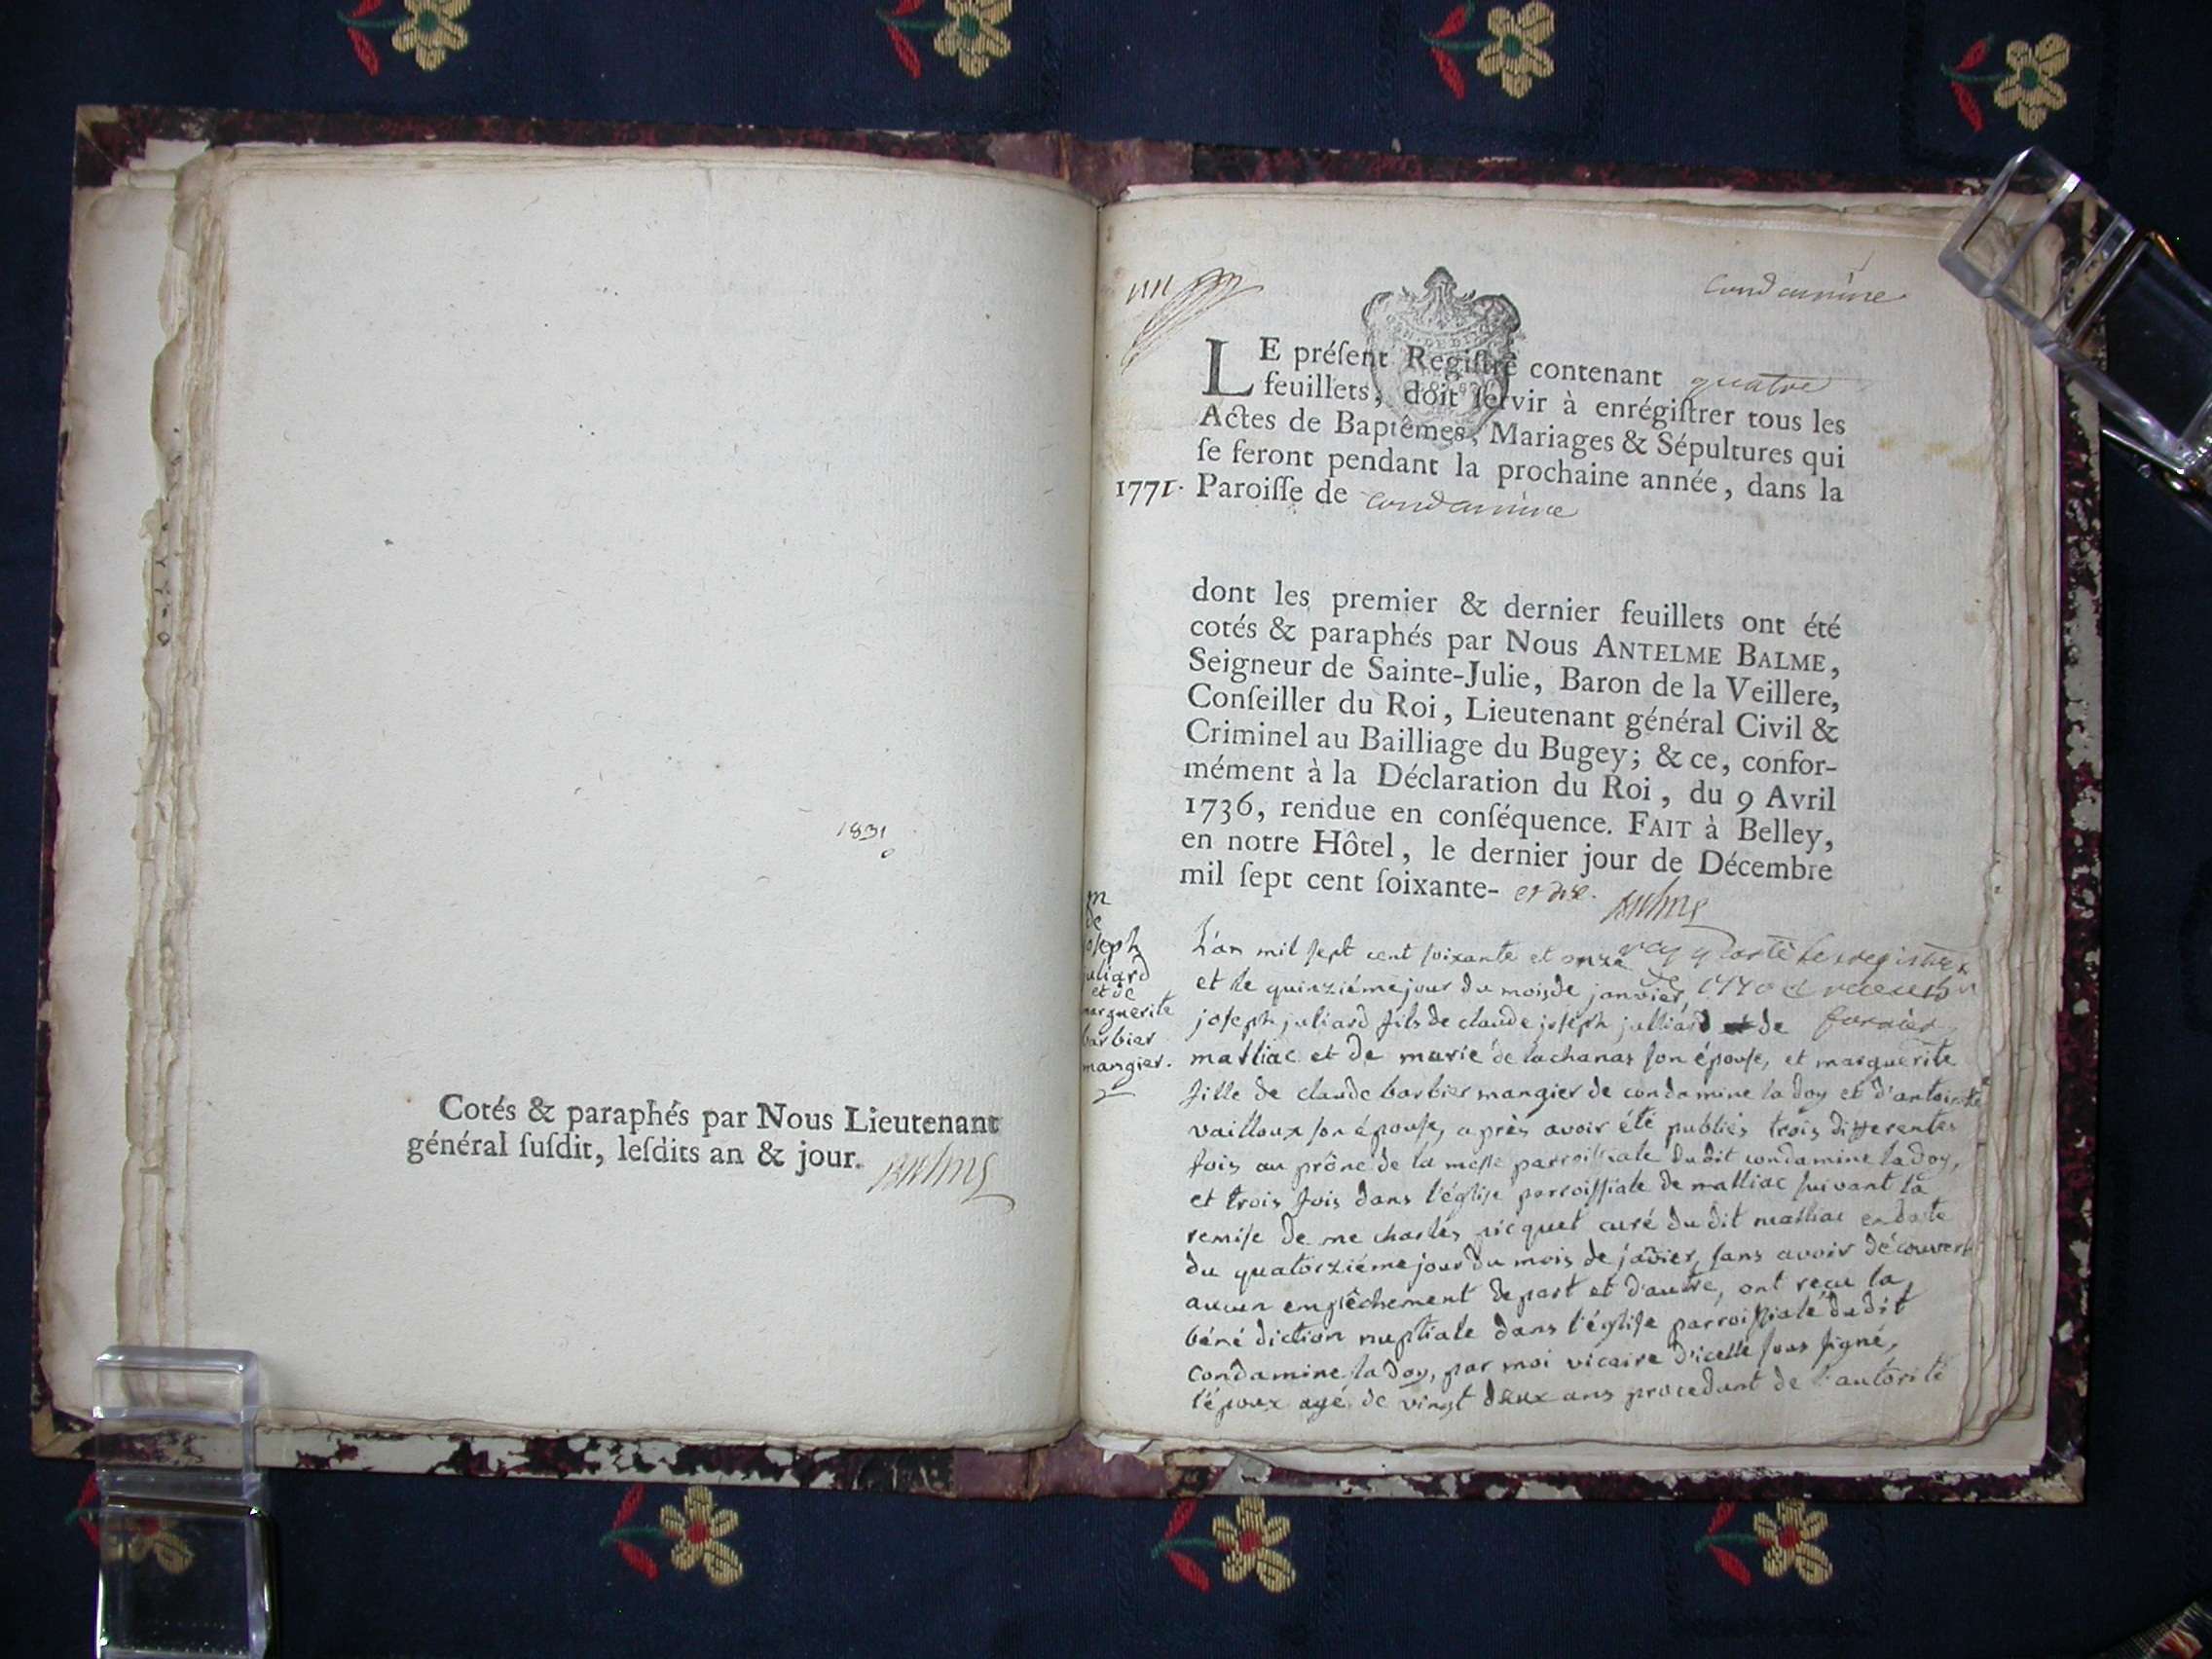 1831
Cotés & paraphés par Nous Lieutenant
général ſuſdit, leſdits an & jour.
Balme
condamine
LE préſent Regiſtre contenant quatre
feuillets, doit ſervir à enrégiſtrer tous les
Actes de Baptêmes, Mariages & Sépultures qui
ſe feront pendant la prochaine année, dans la
1771. Paroiſſe de condamine
dont les premier & dernier feuillets ont été
cotés & paraphés par Nous ANTELME BALME,
Seigneur de Sainte-Julie, Baron de la Veillere,
Conſeiller du Roi, Lieutenant général Civil &
Criminel au Bailliage du Bugey; & ce, confor-
mément à la Déclaration du Roi, du 9 Avril
1736, rendue en conſéquence. FAIT à Belley,
en notre Hôtel, le dernier jour de Décembre
mil ſept cent ſoixante- et dix. Balme
m
de
joseph
juliard
et de
marguerite
barbier
mangier.
L'an mil sept cent soixante et onze
et le quinziéme jour du mois de janvier, de 1770
joseph juliard fils de claude joseph julliard de
matliac et de marie de lachanas son épouse, et marguerite
fille de claude barbier mangier de condamine la doy et d'antoinette
vailloux son épouse, après avoir été publiés trois differentes
fois au prône de la messe parroissiale du dit condamine la doy,
et trois fois dans l'église parroissiale de matliac suivant la
remise de me charles picquet curé du dit matliac en date
du quatorziéme jour du mois de javier, sans avoir découvert
aucun empêchement de part et d'autre, ont reçu la
bénédiction nuptiale dans l'église parroissiale du dit
condamine la doy, par moi vicaire d'icelle sous signé,
l'époux agé de vingt deux ans procedant de l'autorité